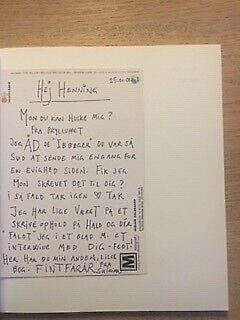 25.01.00
Hej Henning
Mon du kan huske mig?
fra brylluppet
Jeg ÅD de "ISBØGER" du var så
sød at sende mig engang for
en evighed siden. Fik jeg
mon skrevet det til dig?
i så fald tak igen ♡ Tak
Jeg har lige været på et
skriveophold på Hald og der
"faldt" jeg i et blad m. et
interview med dig - fedt!
Her har du min anden, lille
bog. FINTFARÅR fra
M